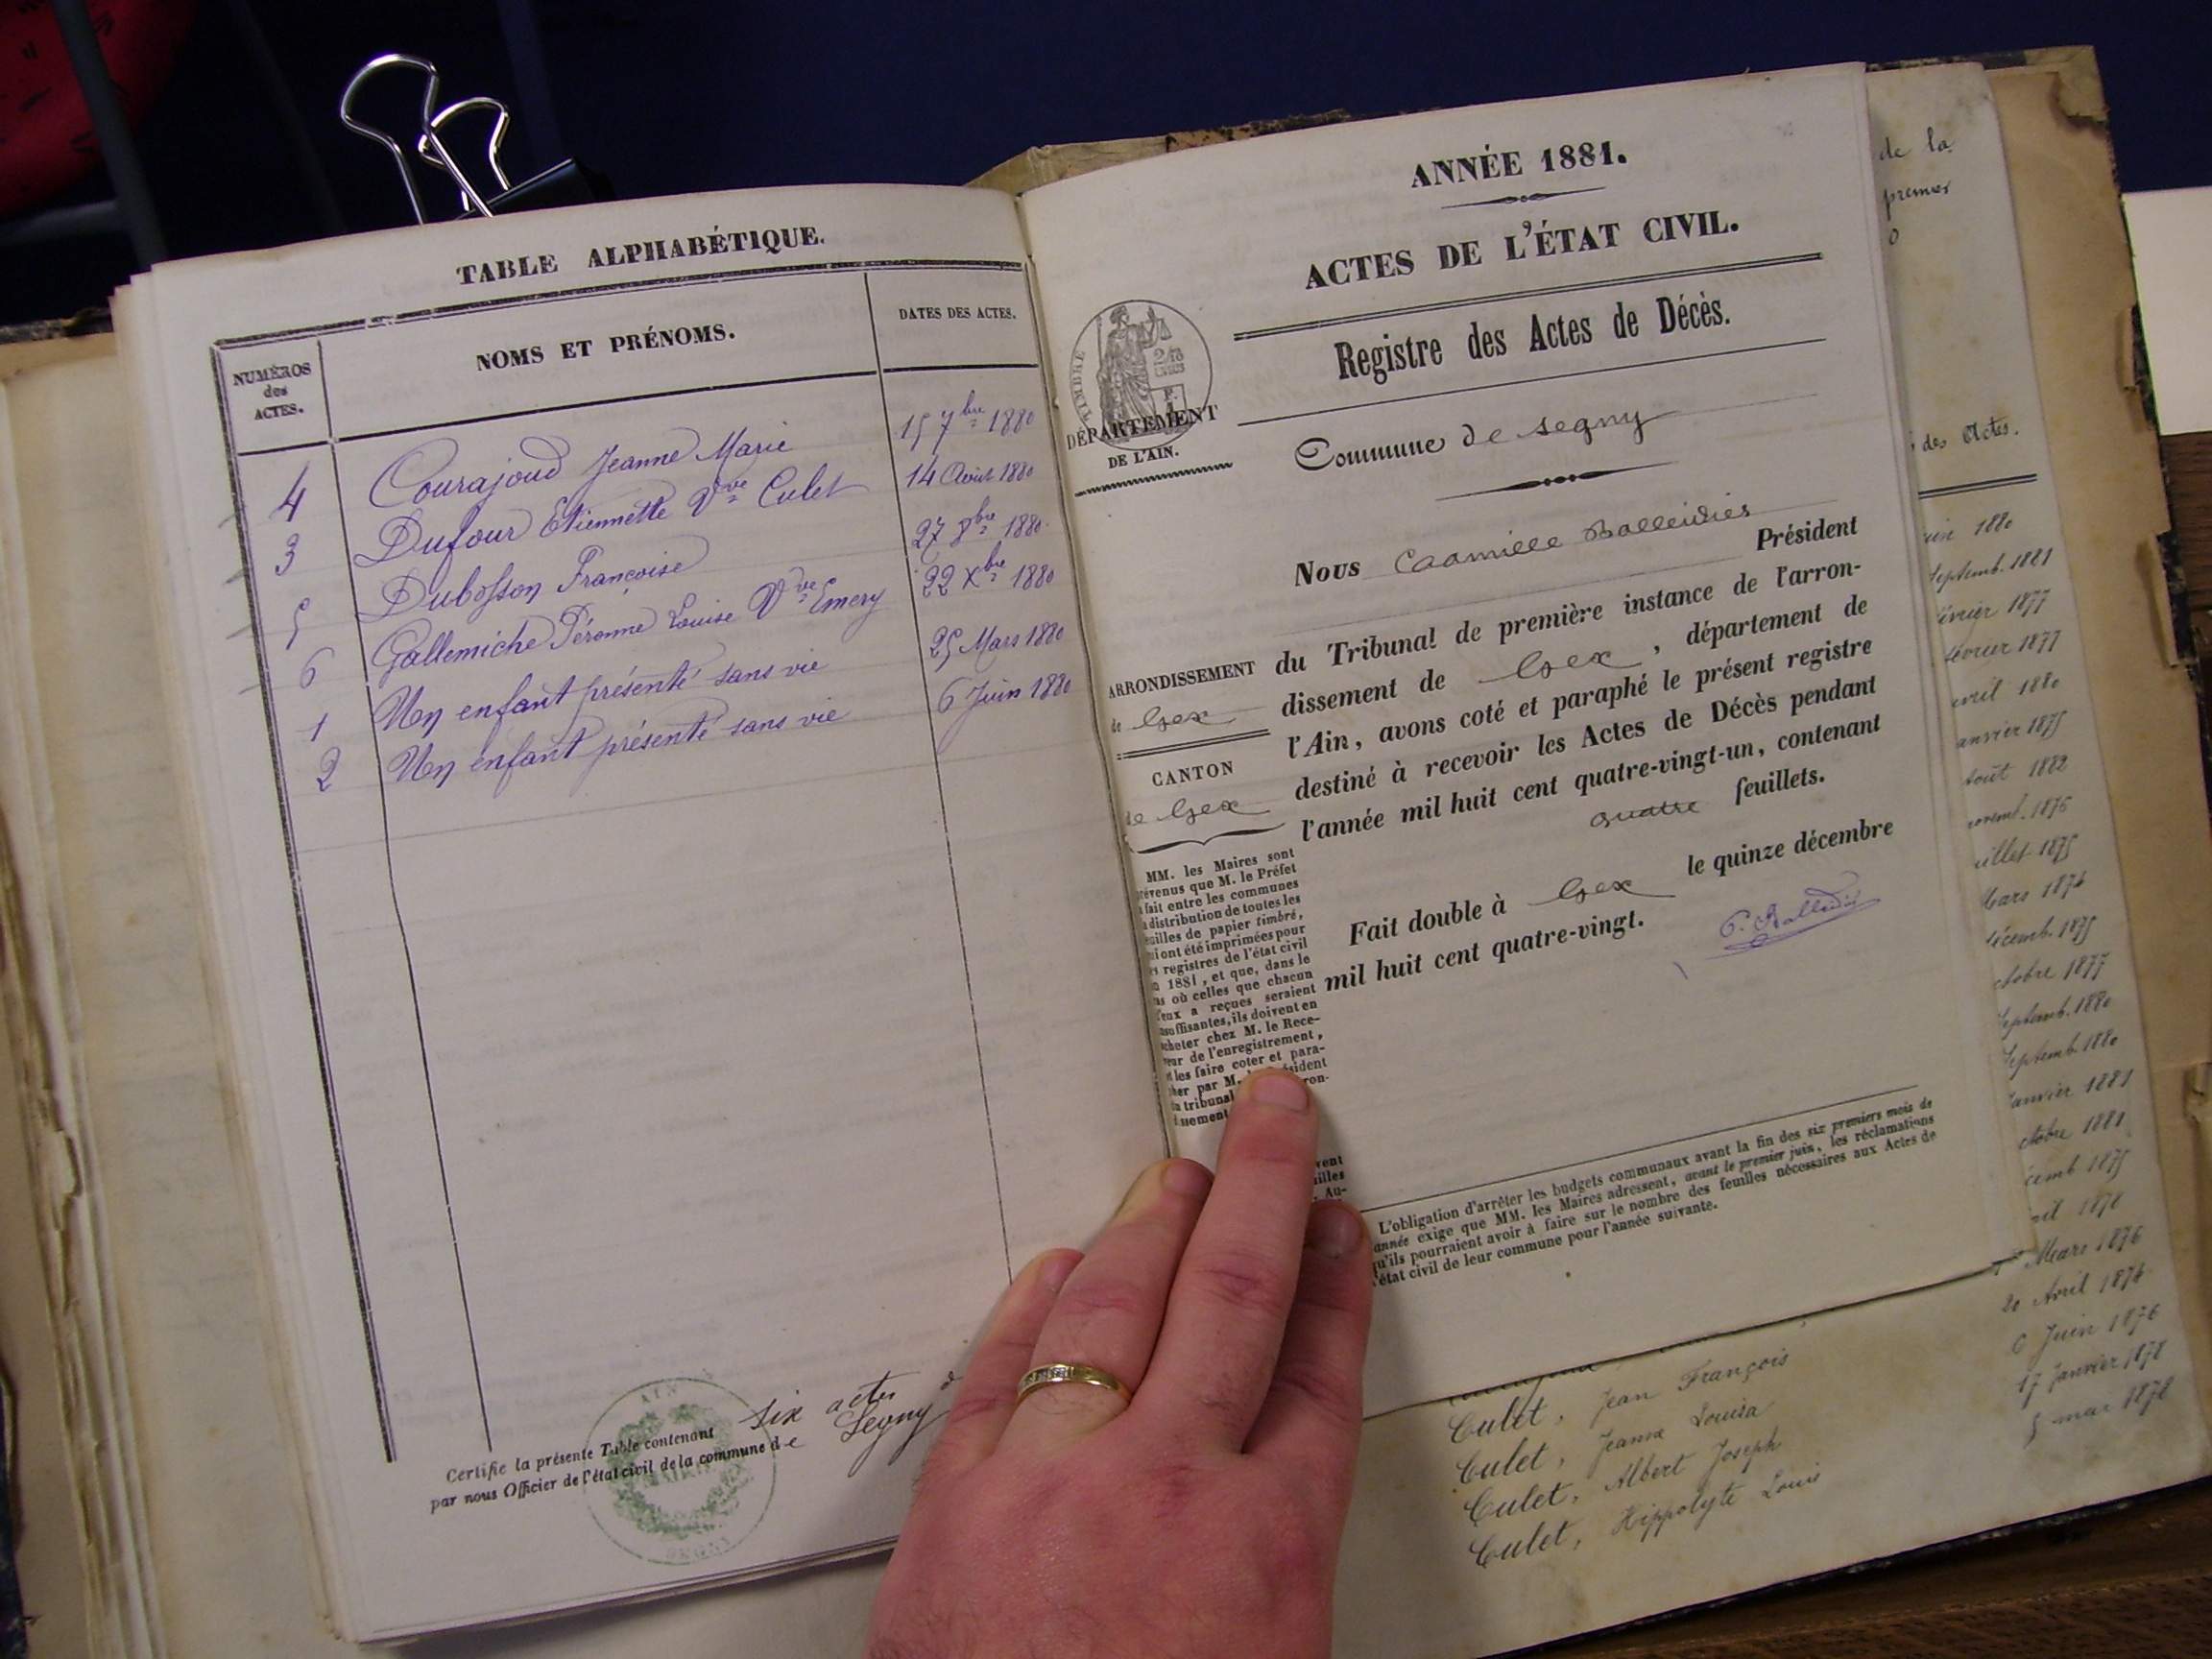 TABLE ALPHABÉTIQUE.
NUMÉROS
des
ACTES.
NOMS ET PRÉNOMS.
DATES DES ACTES.
4 Courajoud Jeanne Marie 15 7bre 1880
3 Dufour Etiennette Vve Culet 14 Aout 1880
5 Dubosson Françoise 27 8bre 1880
6 Gallemiche Péronne Louise Vve Emery 22 Xbre 1880
1 Un enfant présenté sans vie 25 Mars 1880
2 Un enfant présenté sans vie 6 Juin 1880
six actes
Certifié la présente Table contenant
par nous Officier de l'état civil de la commune de Segny
AIN
SEGNY
ANNÉE 1881.
ACTES DE L'ÉTAT CIVIL.
Registre des Actes de Décès.
TIMBRE
DÉPARTEMENT
DE L'AIN.
Commune de Segny
Nous Camille Balleidier Président
du Tribunal de première instance de l'arron-
dissement de Gex, département de
l'Ain, avons coté et paraphé le présent registre
destiné à recevoir les Actes de Décès pendant
l'année mil huit cent quatre-vingt-un, contenant
quatre feuillets.
Fait double à Gex le quinze décembre
mil huit cent quatre-vingt.
C. Balleidier
ARRONDISSEMENT
de Gex
CANTON
de Gex
MM. les Maires sont
évenus que M. le Préfet
fait entre les communes
distribution de toutes les
uilles de papier timbré,
ui ont été imprimées pour
s registres de l'état civil
1881, et que, dans le
as où celles que chacun
'eux a reçues seraient
suffisantes, ils doivent en
cheter chez M. le Rece-
eur de l'enregistrement,
les faire coter et para-
her par M. sident
u tribunal ron-
ssement
vent
uilles
Au-
L'obligation d'arrêter les budgets communaux avant la fin des six premiers mois de
année exige que MM. les Maires adressent, avant le premier juin, les réclamations
qu'ils pourraient avoir à faire sur le nombre des feuilles nécessaires aux Actes de
l'état civil de leur commune pour l'année suivante.
de la
premier
des Actes.
uin 1880
Septemb. 1881
évrier 1877
février 1877
avril 1880
anvier 1875
août 1882
novemb. 1876
uillet 1875
Mars 1874
décemb. 1875
ctobre 1877
Septemb. 1880
Septemb. 1880
anvier 1881
ctobre 1881
écemb 1875
ril 1878
Mars 1876
20 Avril 1874
Culet, Jean François 6 Juin 1876
Culet, Jeanne Louisa 17 Janvier 1878
Culet, Albert Joseph 5 mar 1878
Culet, Hippolyte Louis